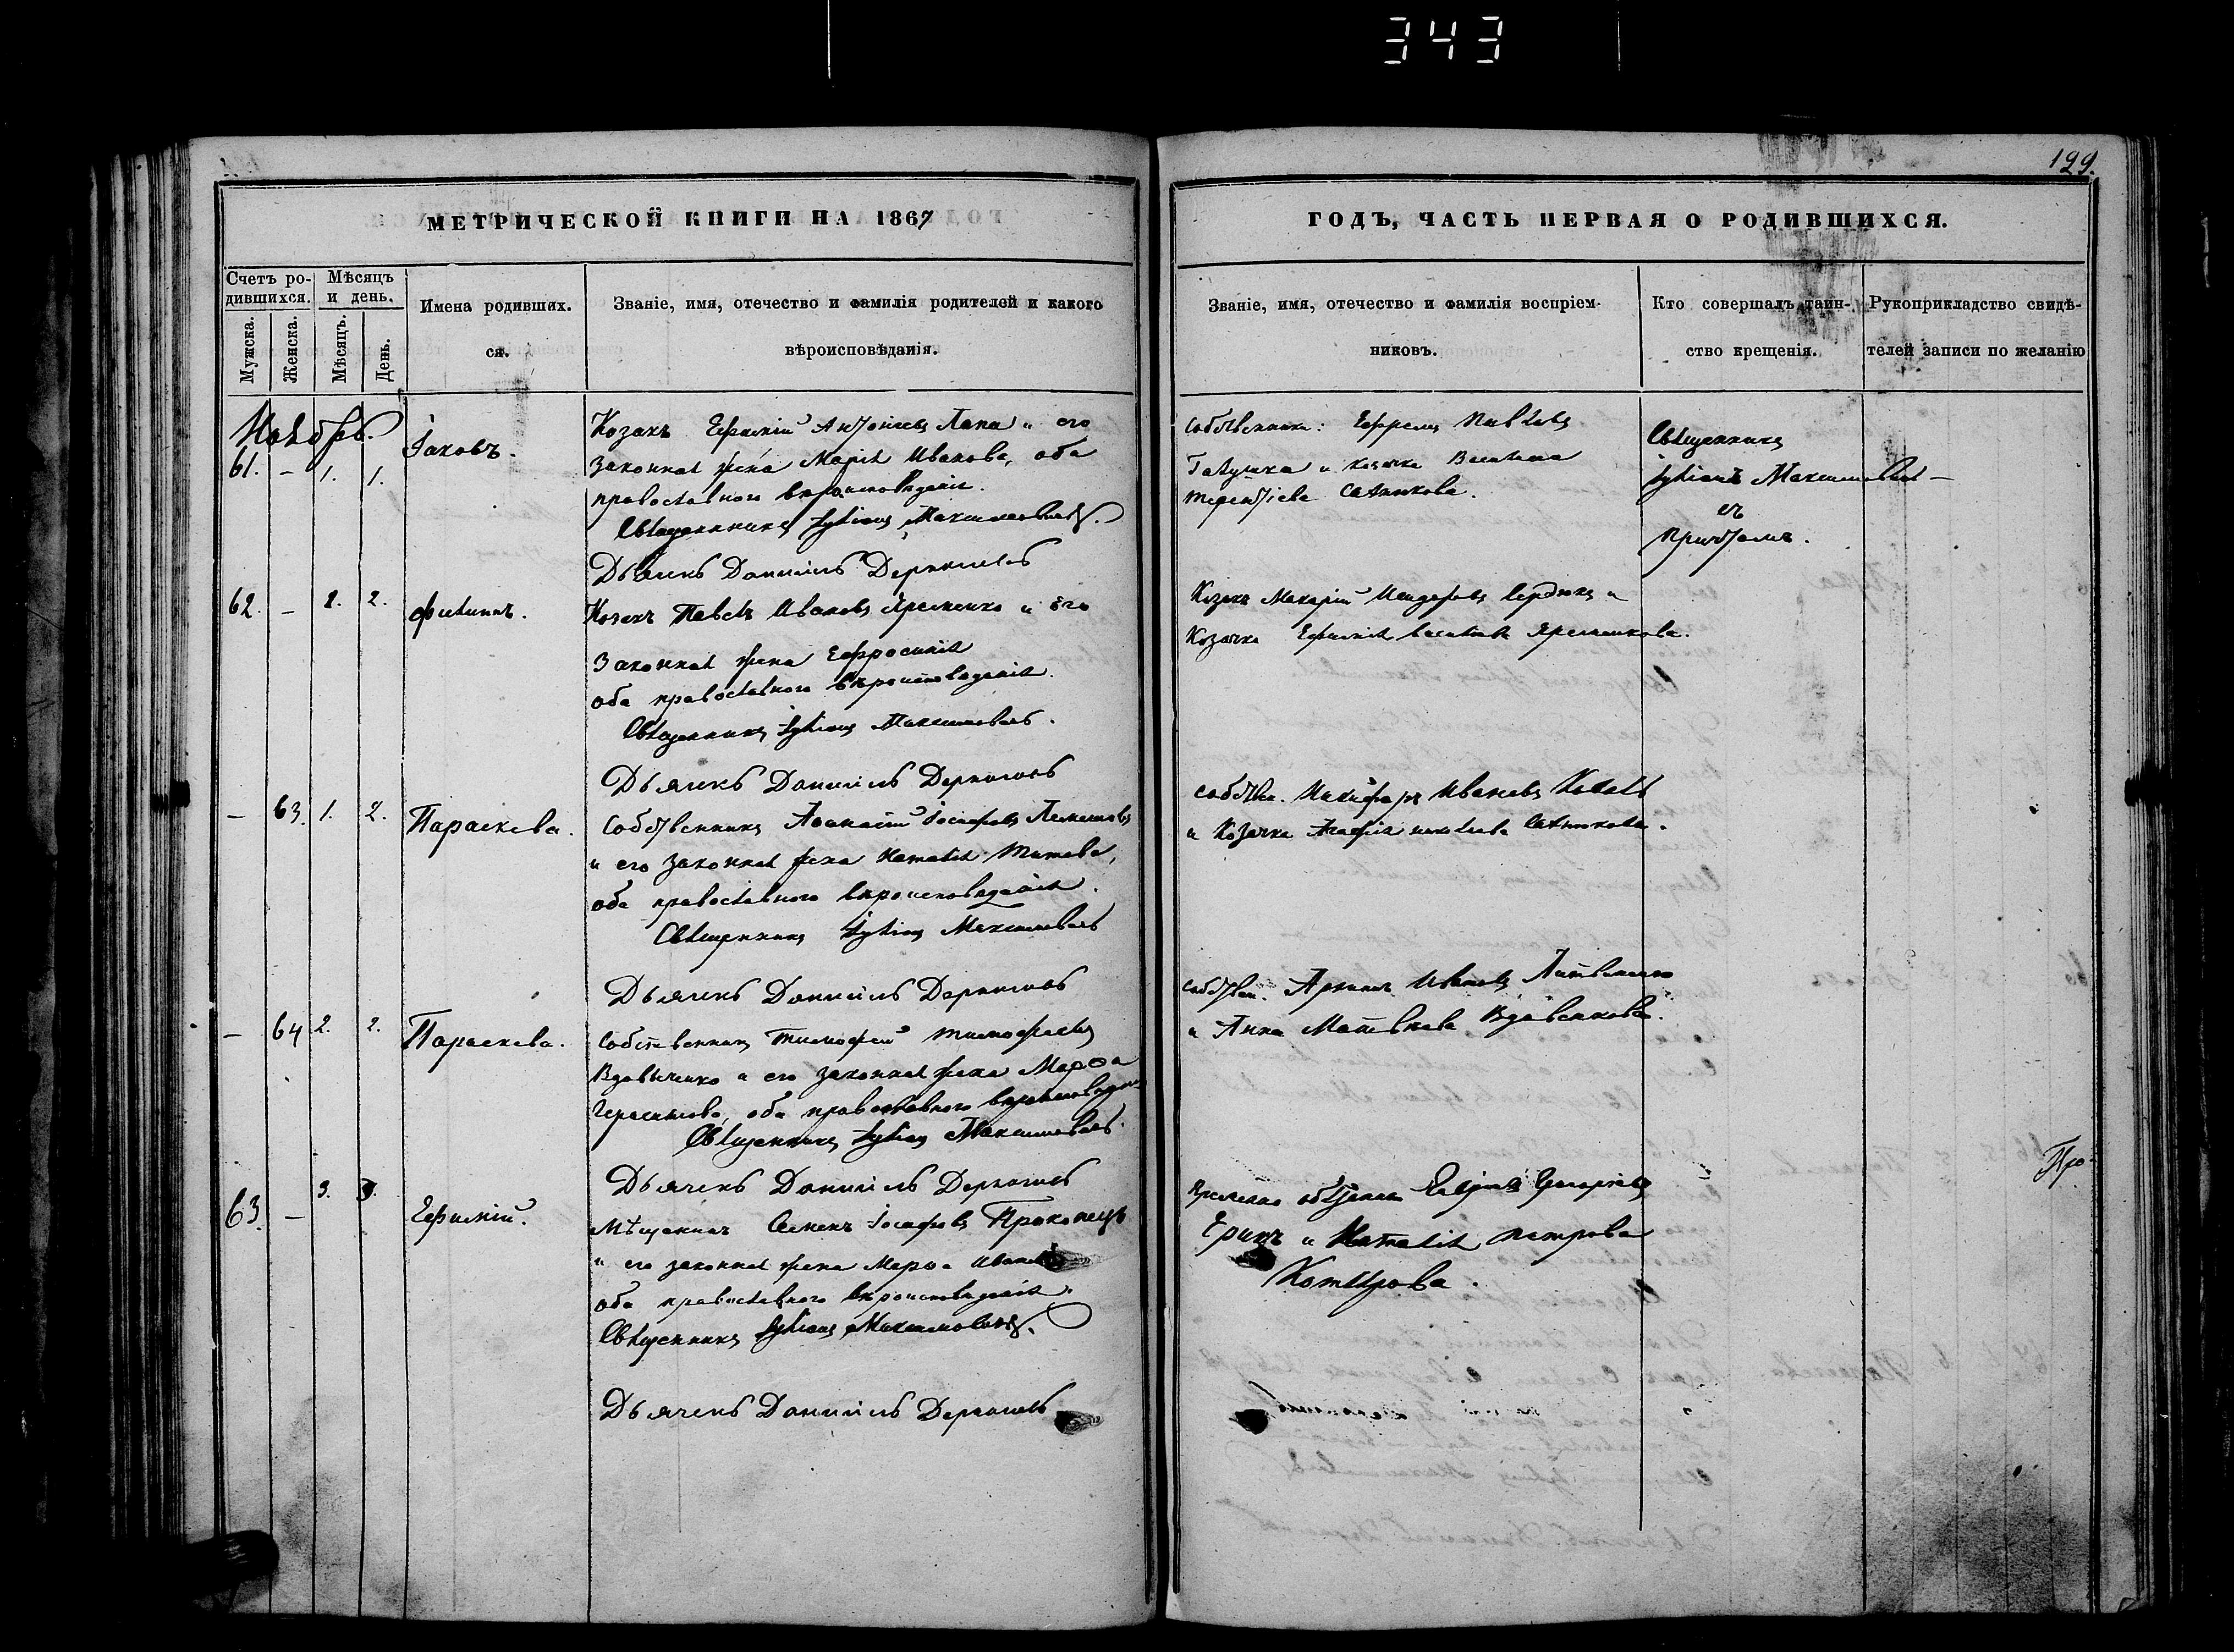 343
129.
МЕТРИЧЕСКОЙ КНИГИ НА 1867
Счетъ ро-
дившихся.
Мѣсяцъ
и день.
Мужска.
Женска.
Мѣсяцъ.
День.
Имена родивших.
ся.
Званіе, имя, отечество и фамилія родителей и какого
вѣроисповѣданія.
61. - 1. 1.
Іаковъ.
Козакъ Ефимій Антоніевъ Лапа и его
законная жена Марія Иванова, оба
православного вѣроисповѣданія.
Священникъ Іуліанъ Максимовичъ.
Дьячекъ Даніилъ
62. - 2. 2.
Филипъ.
Козакъ Павелъ Ивановъ Яременко и его
законная жена Ефросинія
оба православного вѣроисповѣданія.
Священникъ Іуліанъ Максимовичъ.
Дьячекъ Даніилъ
- 63. 1. 2.
Параскева.
Собственникъ Аѳанасій Іосифовъ
и его законная жена Наталія Титова,
оба православного вѣроисповѣданія.
Священникъ Іуліанъ Максимовичъ
Дьячекъ Даніилъ
- 64 2. 2.
Параскева.
Собственникъ Тимофей Тимофеевъ
Вдовиченко и его законная жена Марѳа
Герасимова, оба православного
Священникъ Іуліанъ Максимовичъ.
Дьячекъ Даніилъ
63. - 3. 3.
Ефимій.
Мѣщанинъ Семенъ Іосифовъ Прокопецъ
и его законная жена Марѳа
оба православного вѣроисповѣданія.
Священникъ Іуліанъ Максимовичъ.
Дьячекъ Даніилъ
ГОДЪ, ЧАСТЬ ПЕРВАЯ О РОДИВШИХСЯ.
Званіе, имя, отечество и фамилія воспріем-
никовъ.
Кто совершалъ таин-
ство крещенія.
Рукоприкладство свидѣ-
телей записи по желанію
Собственникъ: Ефремъ Павловъ
Галушка и козачка
Терентіева
Священникъ
Іуліанъ Максимовичъ
съ
причтомъ.
Козакъ Макарій Сердюкъ и
Козачка Ефимія Яременкова.
собствен. Никифоръ Ивановъ Коваль
и Козачка Агафія
собствен. Архипъ Ивановъ Литвиненко
и Анна Матвѣева
Временно обязан. Григоріевъ
и Наталія Петрова
Про-